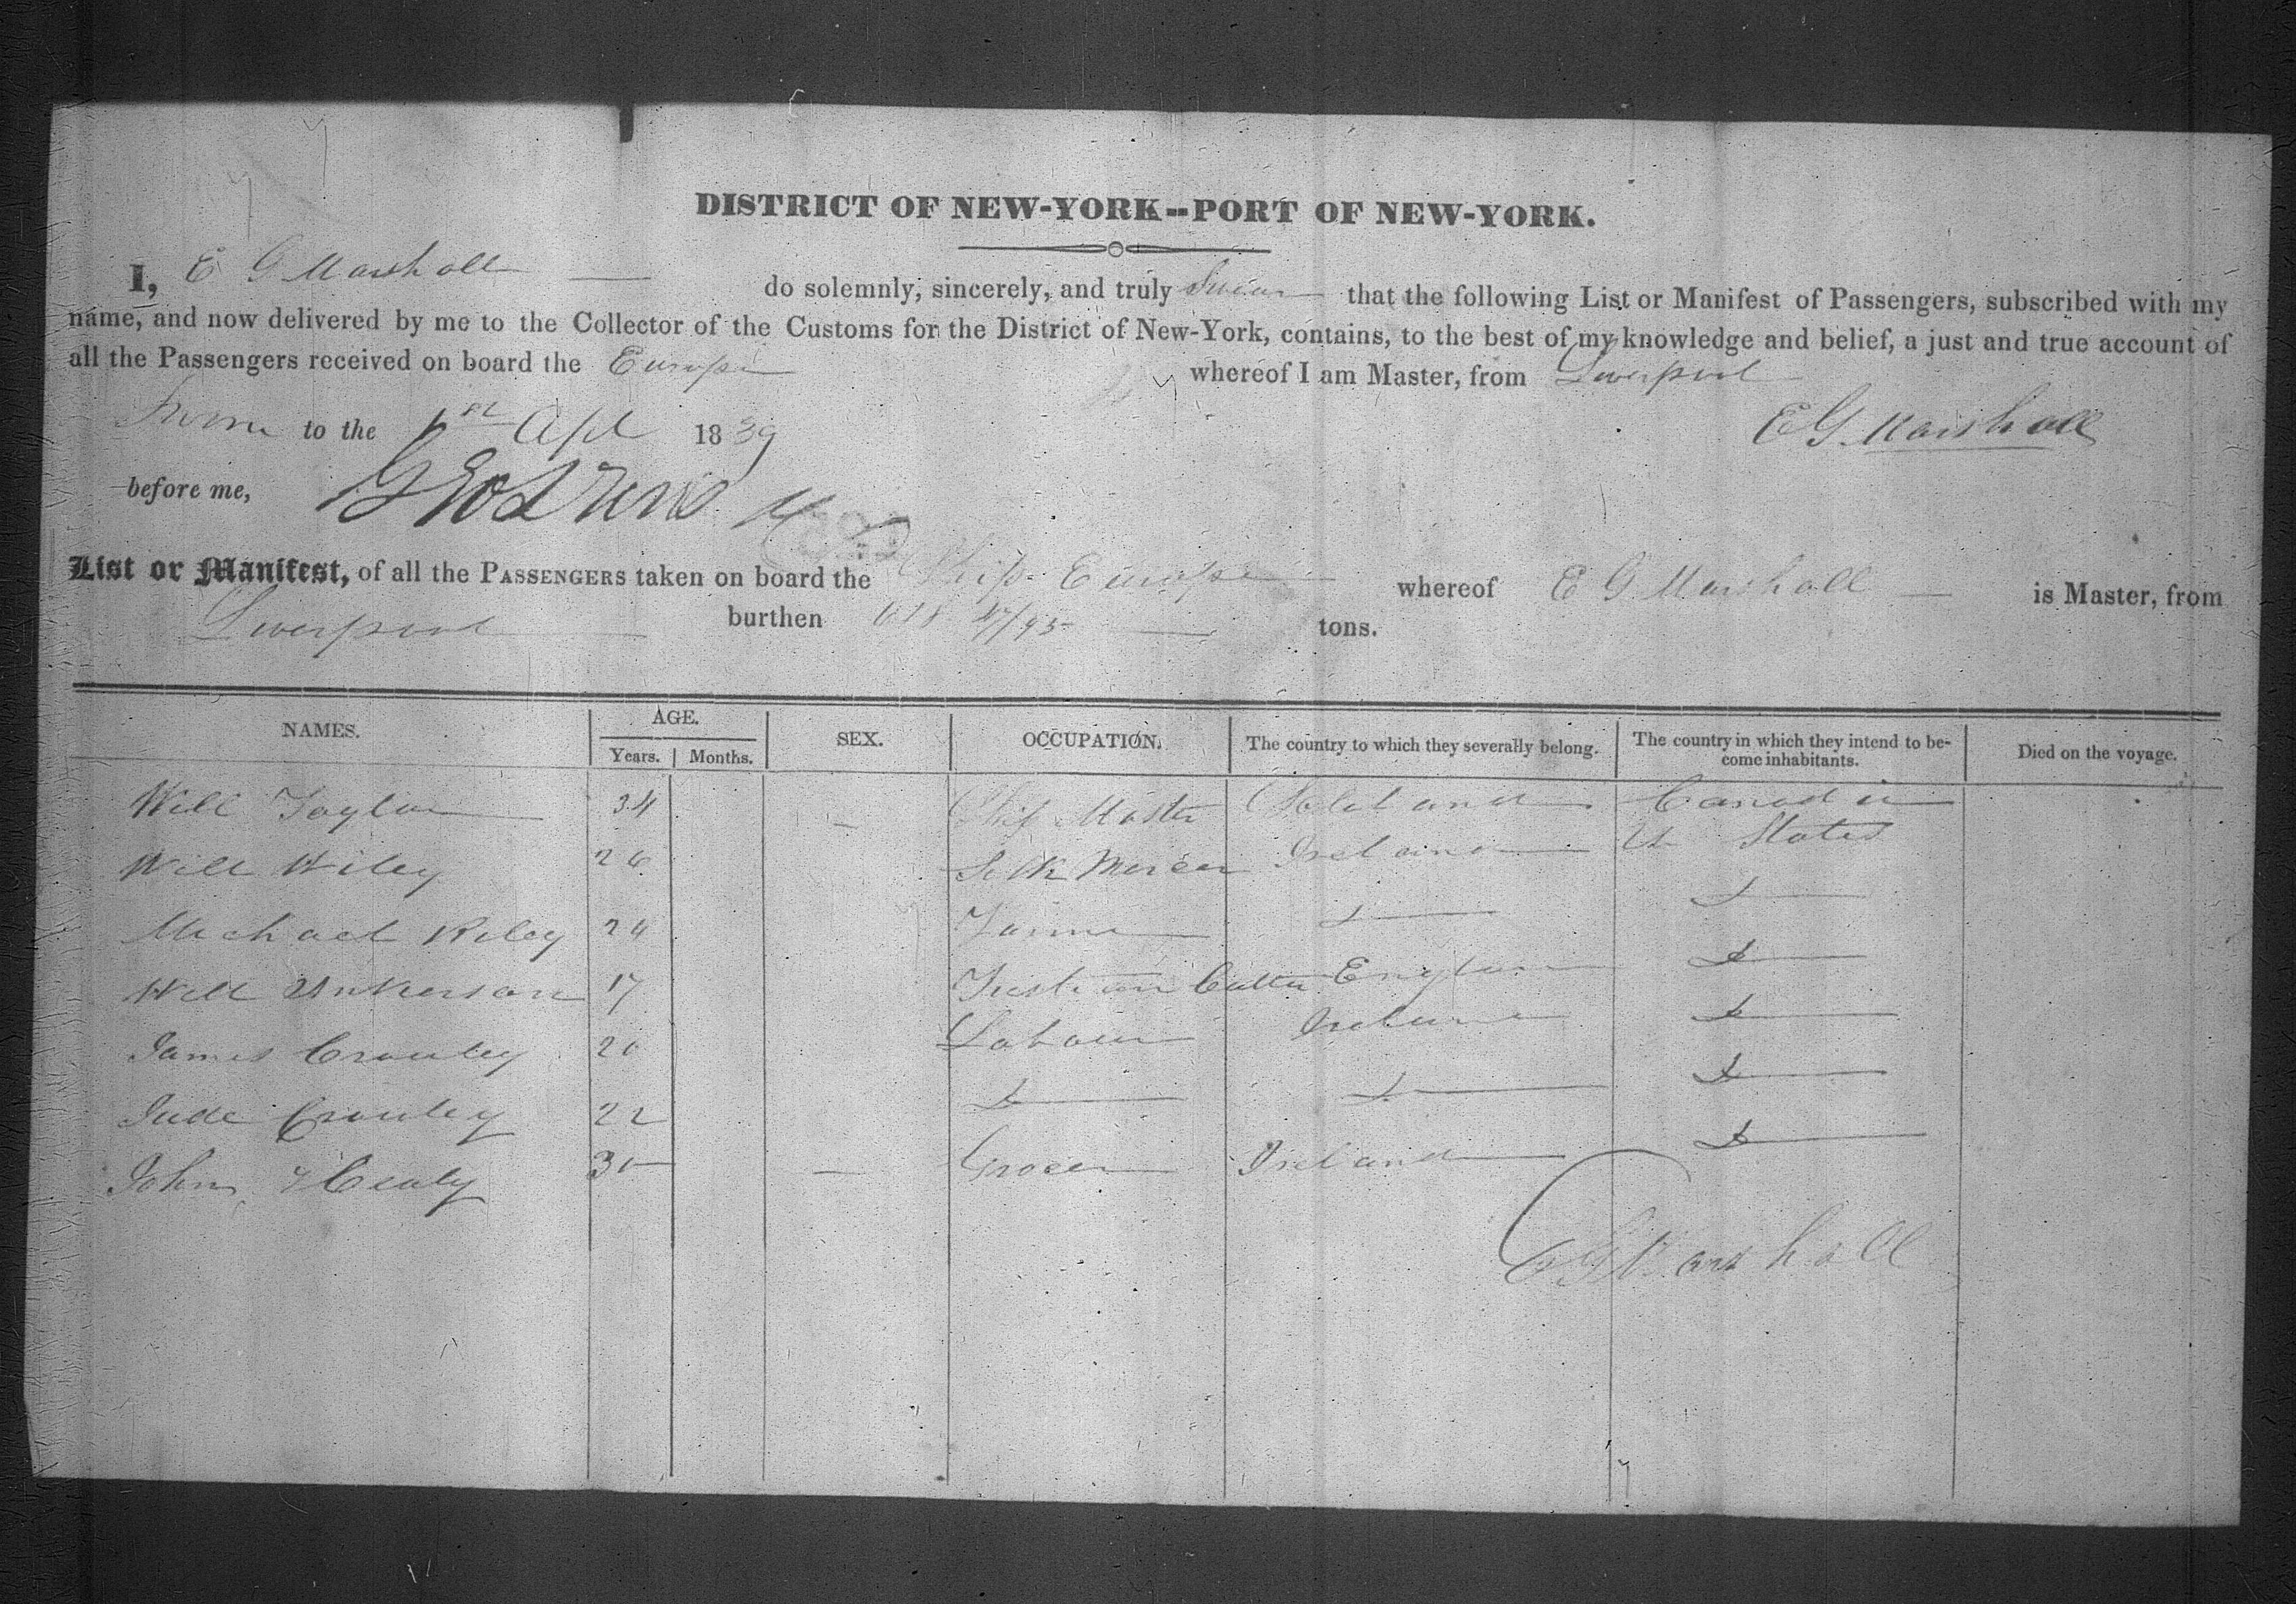 DISTRICT OF NEW-YORK--PORT OF NEW-YORK.
I, E G Marshall do solemnly, sincerely, and truly Swear that the following List or Manifest of Passengers, subscribed with my
name, and now delivered by me to the Collector of the Customs for the District of New-York, contains, to the best of my knowledge and belief, a just and true account of
all the Passengers received on board the Europe whereof I am Master, from Liverpool
Sworn to the 1st Apl 1839 E G Marshall
before me,
List or Manifest, of all the PASSENGERS taken on board the Ship Europe whereof E G Marshall is Master, from
Liverpool burthen 618 /95 tons.
NAMES. AGE. Years. Months. SEX. OCCUPATION. The country to which they severally belong. The country in which they intend to become inhabitants. Died on the voyage.
Will Taylor 34 Ship Master Canada
Will Wiley 26 Silk Mercer Ireland U States
Michael Riley 24
Will 17 Fustian Cutter England
James Crowley 20 Labour Ireland
Jude Crowley 22
John Healy 30 Grocer Ireland
E G Marshall